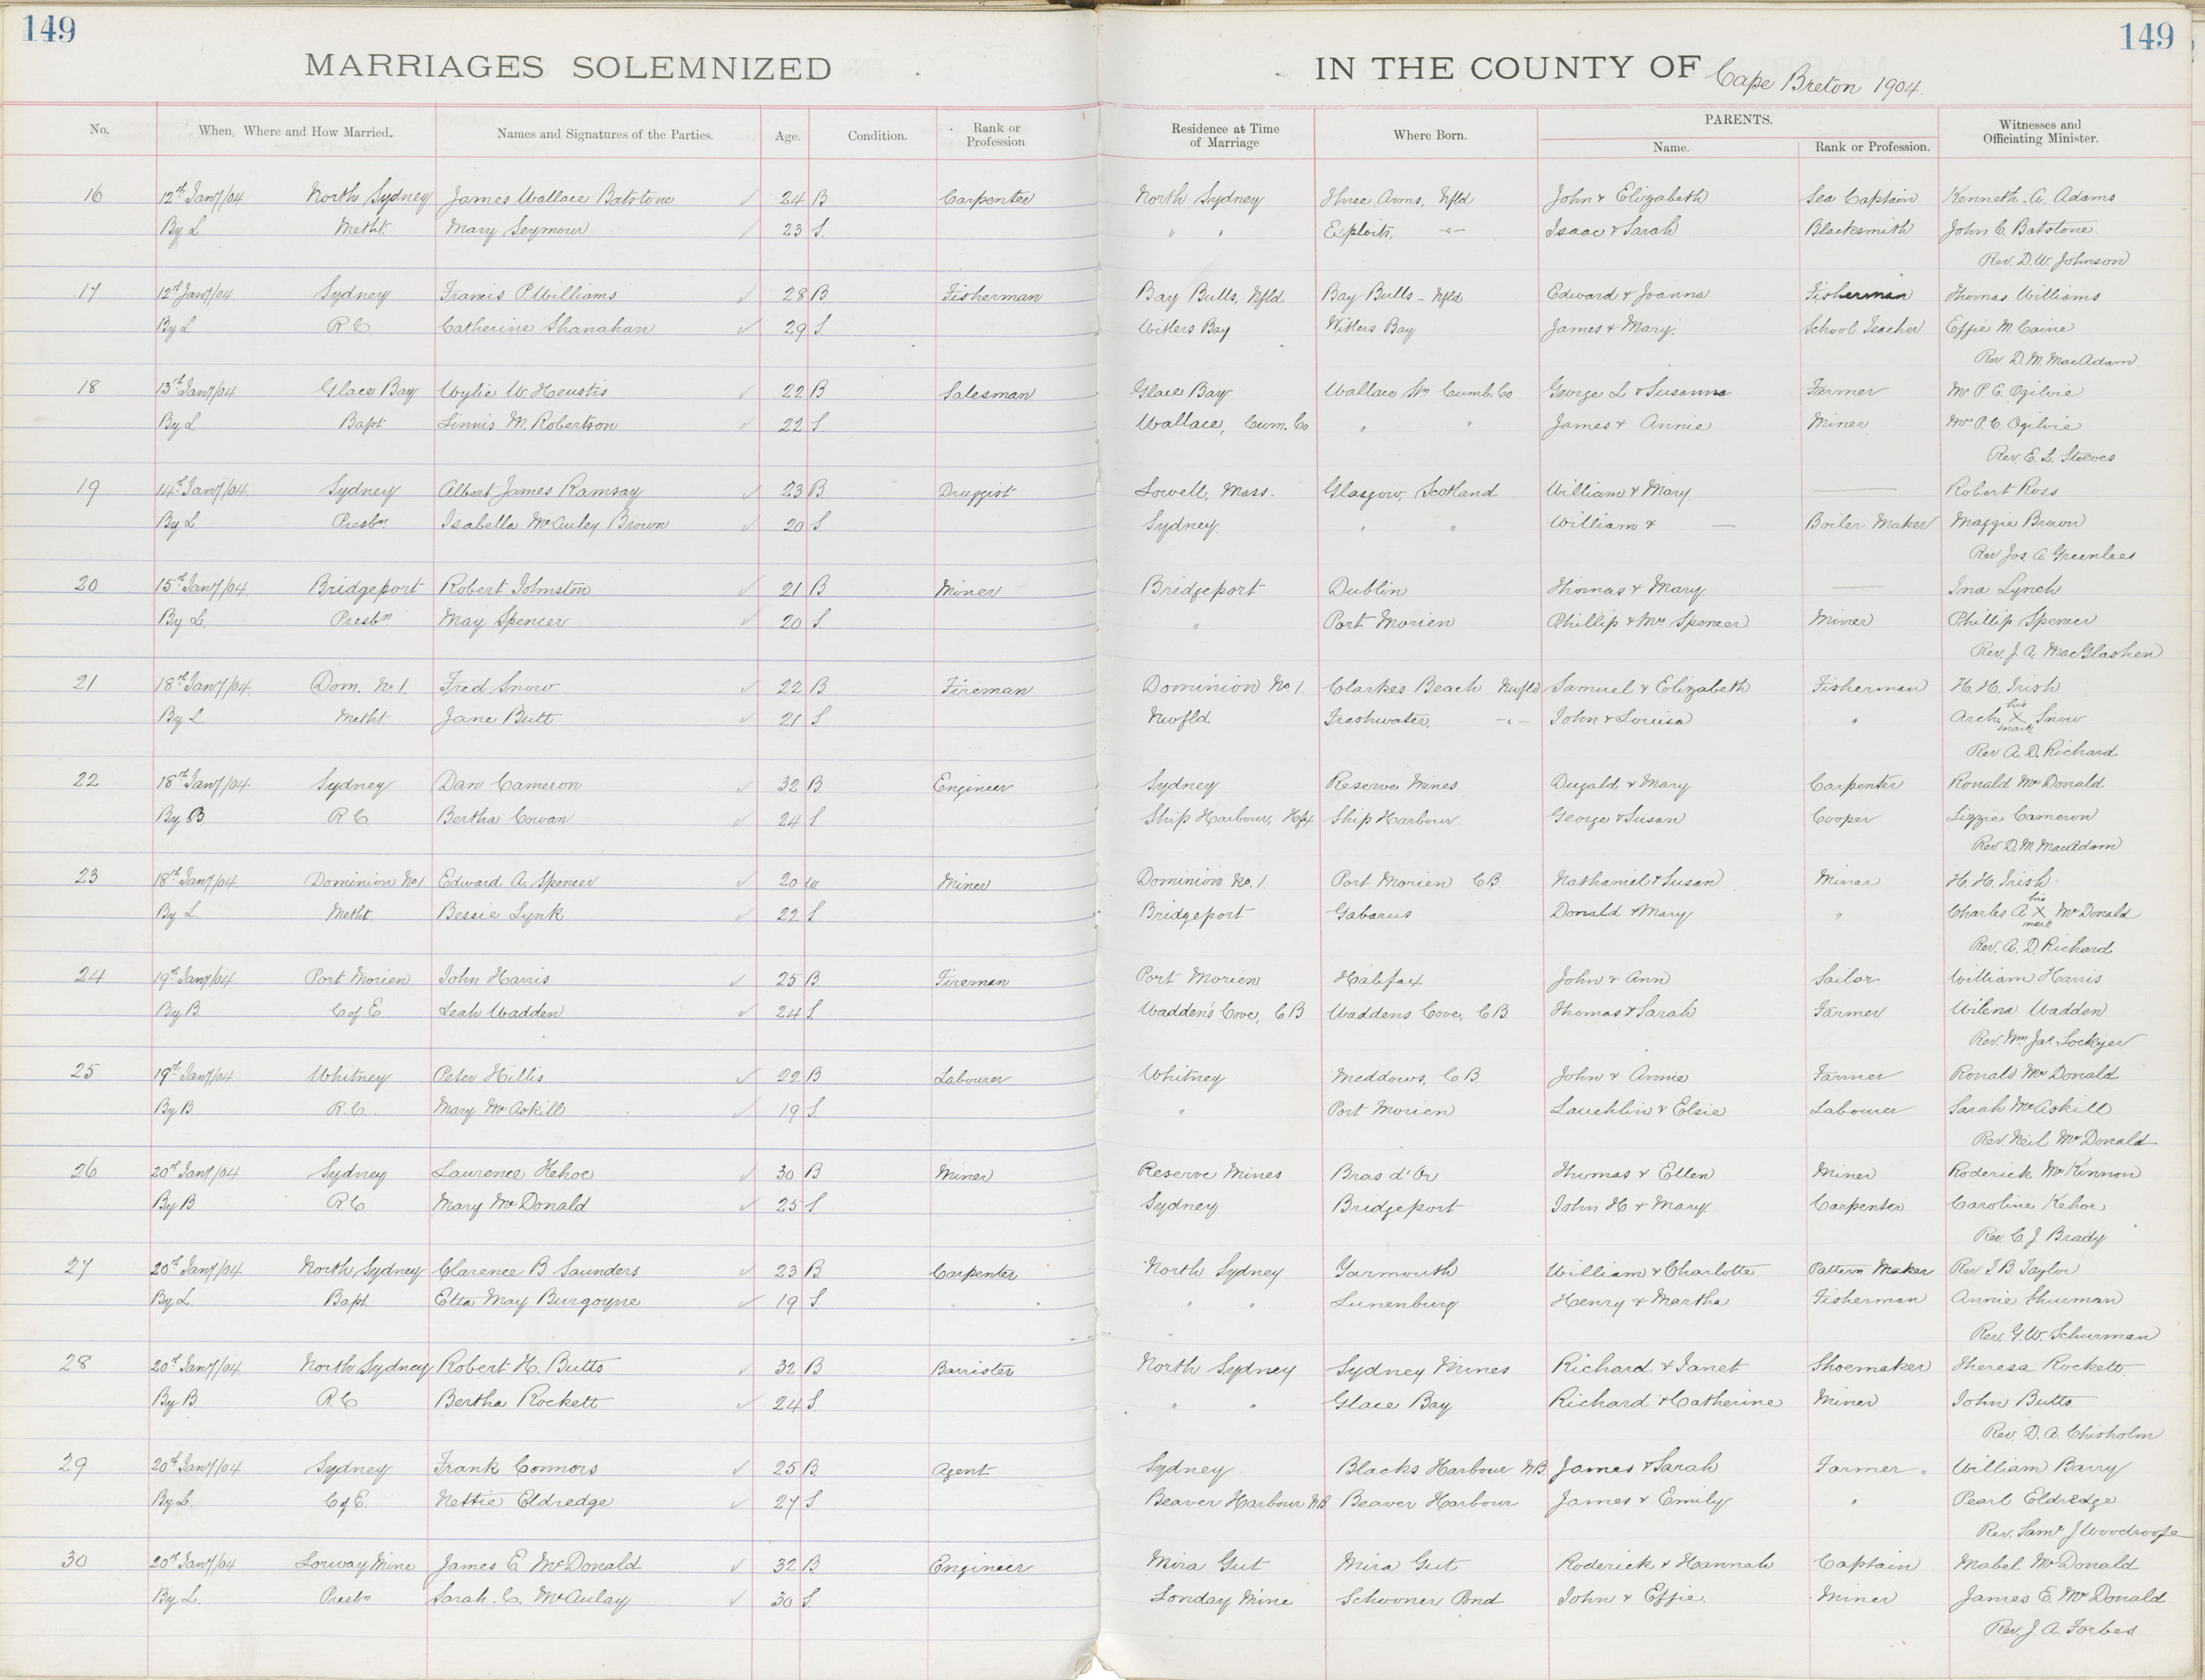 149
149
MARRIAGES SOLEMNIZED IN THE COUNTY OF Cape Breton 1904.
No. When, Where and How Married. Names and Signatures of the Parties. Age. Condition. Rank or Profession Residence at Time of Marriage Where Born. PARENTS. Name. Rank or Profession. Witnesses and Officiating Minister.
16 12th Jany/04 North Sydney James Wallace Batstone 24 B Carpenter North Sydney Three Arms, Nfld John & Elizabeth Sea Captain Kenneth A. Adams
By L Metht. Mary Seymour 23 S. " " Exploits, -"- Isaac & Sarah Blacksmith John C. Batstone
Rev. D. W. Johnson
17 12th Jany/04 Sydney Francis P. Williams 28 B Fisherman Bay Bulls, Nfld Bay Bulls - Nfld Edward & Joanna Fisherman Thomas Williams
By L R C Catherine Shanahan 29 S. Witlers Bay Witlers Bay James & Mary. School Teacher Effie M. Caine
Rev D. M. MacAdam
18 13th Jany/04 Glace Bay Wylie W. Heustis 22 B Salesman Glace Bay Wallace Stn Cumb. Co George L & Susanna Farmer Mr P. C. Ogilvie
By L Bapt Linnis M. Robertson 22 S. Wallace, Cum. Co " " James & Annie Miner Mrs P. C. Ogilvie
Rev. E. L. Steeves
19 14th Jany/04. Sydney Albert James Ramsay 23 B Druggist Lowell, Mass. Glasgow, Scotland William & Mary — Robert Ross
By L Presbn Isabella McAuley Brown 20 S Sydney. " " William & — Boiler Maker Maggie Brown
Rev Jos. A. Greenlees
20 15th Jany/04 Bridgeport Robert Johnston 21 B Miner Bridgeport Dublin Thomas & Mary — Ina Lynch
By L Presbn May Spencer 20 S. " Port Morien Phillip & Mrs Spencer Miner Phillip Spencer
Rev. J. A. MacGlashen
21 18th Jany/04. Dom. No 1. Fred Snow 22 B Fireman Dominion No 1. Clarkes Beach Nufld Samuel & Elizabeth Fisherman H. H. Irish
By L Metht Jane Butt 21 S Newfld Freshwater, -"- John & Louisa " Arch. his X mark Snow
Rev A. D. Richard
22 18th Jany/04. Sydney Dan Cameron 32 B. Engineer Sydney Reserve Mines Dugald & Mary Carpenter Ronald McDonald
By B R C Bertha Cowan 24 S Ship Harbour, Hfx Ship Harbour George & Susan Cooper Lizzie Cameron
Rev D. M. MacAdam
23 18th Jany/04. Dominion No 1 Edward A. Spencer 20 W Miner Dominion No. 1 Port Morien C B. Nathaniel & Susan Miner H. H. Irish
By L. Metht. Bessie Lynk 22 S Bridgeport Gabarus Donald & Mary " Charles A his X mark McDonald
Rev. A. D. Richard
24 19th Jany/04 Port Morien John Harris 25 B. Fireman Port Morien Halifax John & Ann Sailor William Harris
By B C of E Leah Wadden 24 S. Wadden's Cove, C B Waddens Cove, C B. Thomas & Sarah Farmer Wilena Wadden
Rev. Wm Jas. Lockyer
25 19th Jany/04 Whitney Peter Hillis 22 B Labourer Whitney Meddows, C B. John & Annie Farmer Ronald McDonald
By B R. C. Mary McAskill 19 S. " Port Morien Lauchlin & Elsie Labourer Sarah McAskill
Rev Neil McDonald
26 20th Jany/04 Sydney Laurence Kehoe 30 B Miner Reserve Mines Bras d'Or Thomas & Ellen Miner Roderick McKinnon
By B R C Mary McDonald 25 S. Sydney Bridgeport John H & Mary Carpenter Caroline Kehoe
Rev. C. J Brady
27 20th Jany/04. North Sydney Clarence B Saunders 23 B Carpenter North Sydney Yarmouth William & Charlotte Pattern Maker Rev I. B. Taylor
By L Bapt. Etta May Burgoyne 19 S " " Lunenburg Henry & Martha Fisherman Annie Shurman
Rev. G. W. Schurman
28 20th Jany/04. North Sydney Robert H. Butts 32 B Barrister North Sydney Sydney Mines Richard & Janet Shoemaker Theresa Rockett
By B R. C Bertha Rockett 24 S. " " Glace Bay Richard & Catherine Miner John Butts
Rev. D. A. Chisholm
29 20th Jany/04 Sydney Frank Connors 25 B. Agent Sydney Blacks Harbour N.B. James & Sarah Farmer William Barry
By L. C of E. Nettie Eldredge 27 S. Beaver Harbour N B Beaver Harbour James & Emily " Pearl Eldredge
Rev. Saml J Woodroofe
30 20th Jany/04 Lorway Mine James E McDonald 32 B Engineer Mira Gut Mira Gut Roderick & Hannah Captain Mabel McDonald
By L. Presbn Sarah. C. McAulay 30 S. Londay Mine Schooner Pond John & Effie. Miner James E. McDonald
Rev. J. A. Forbes